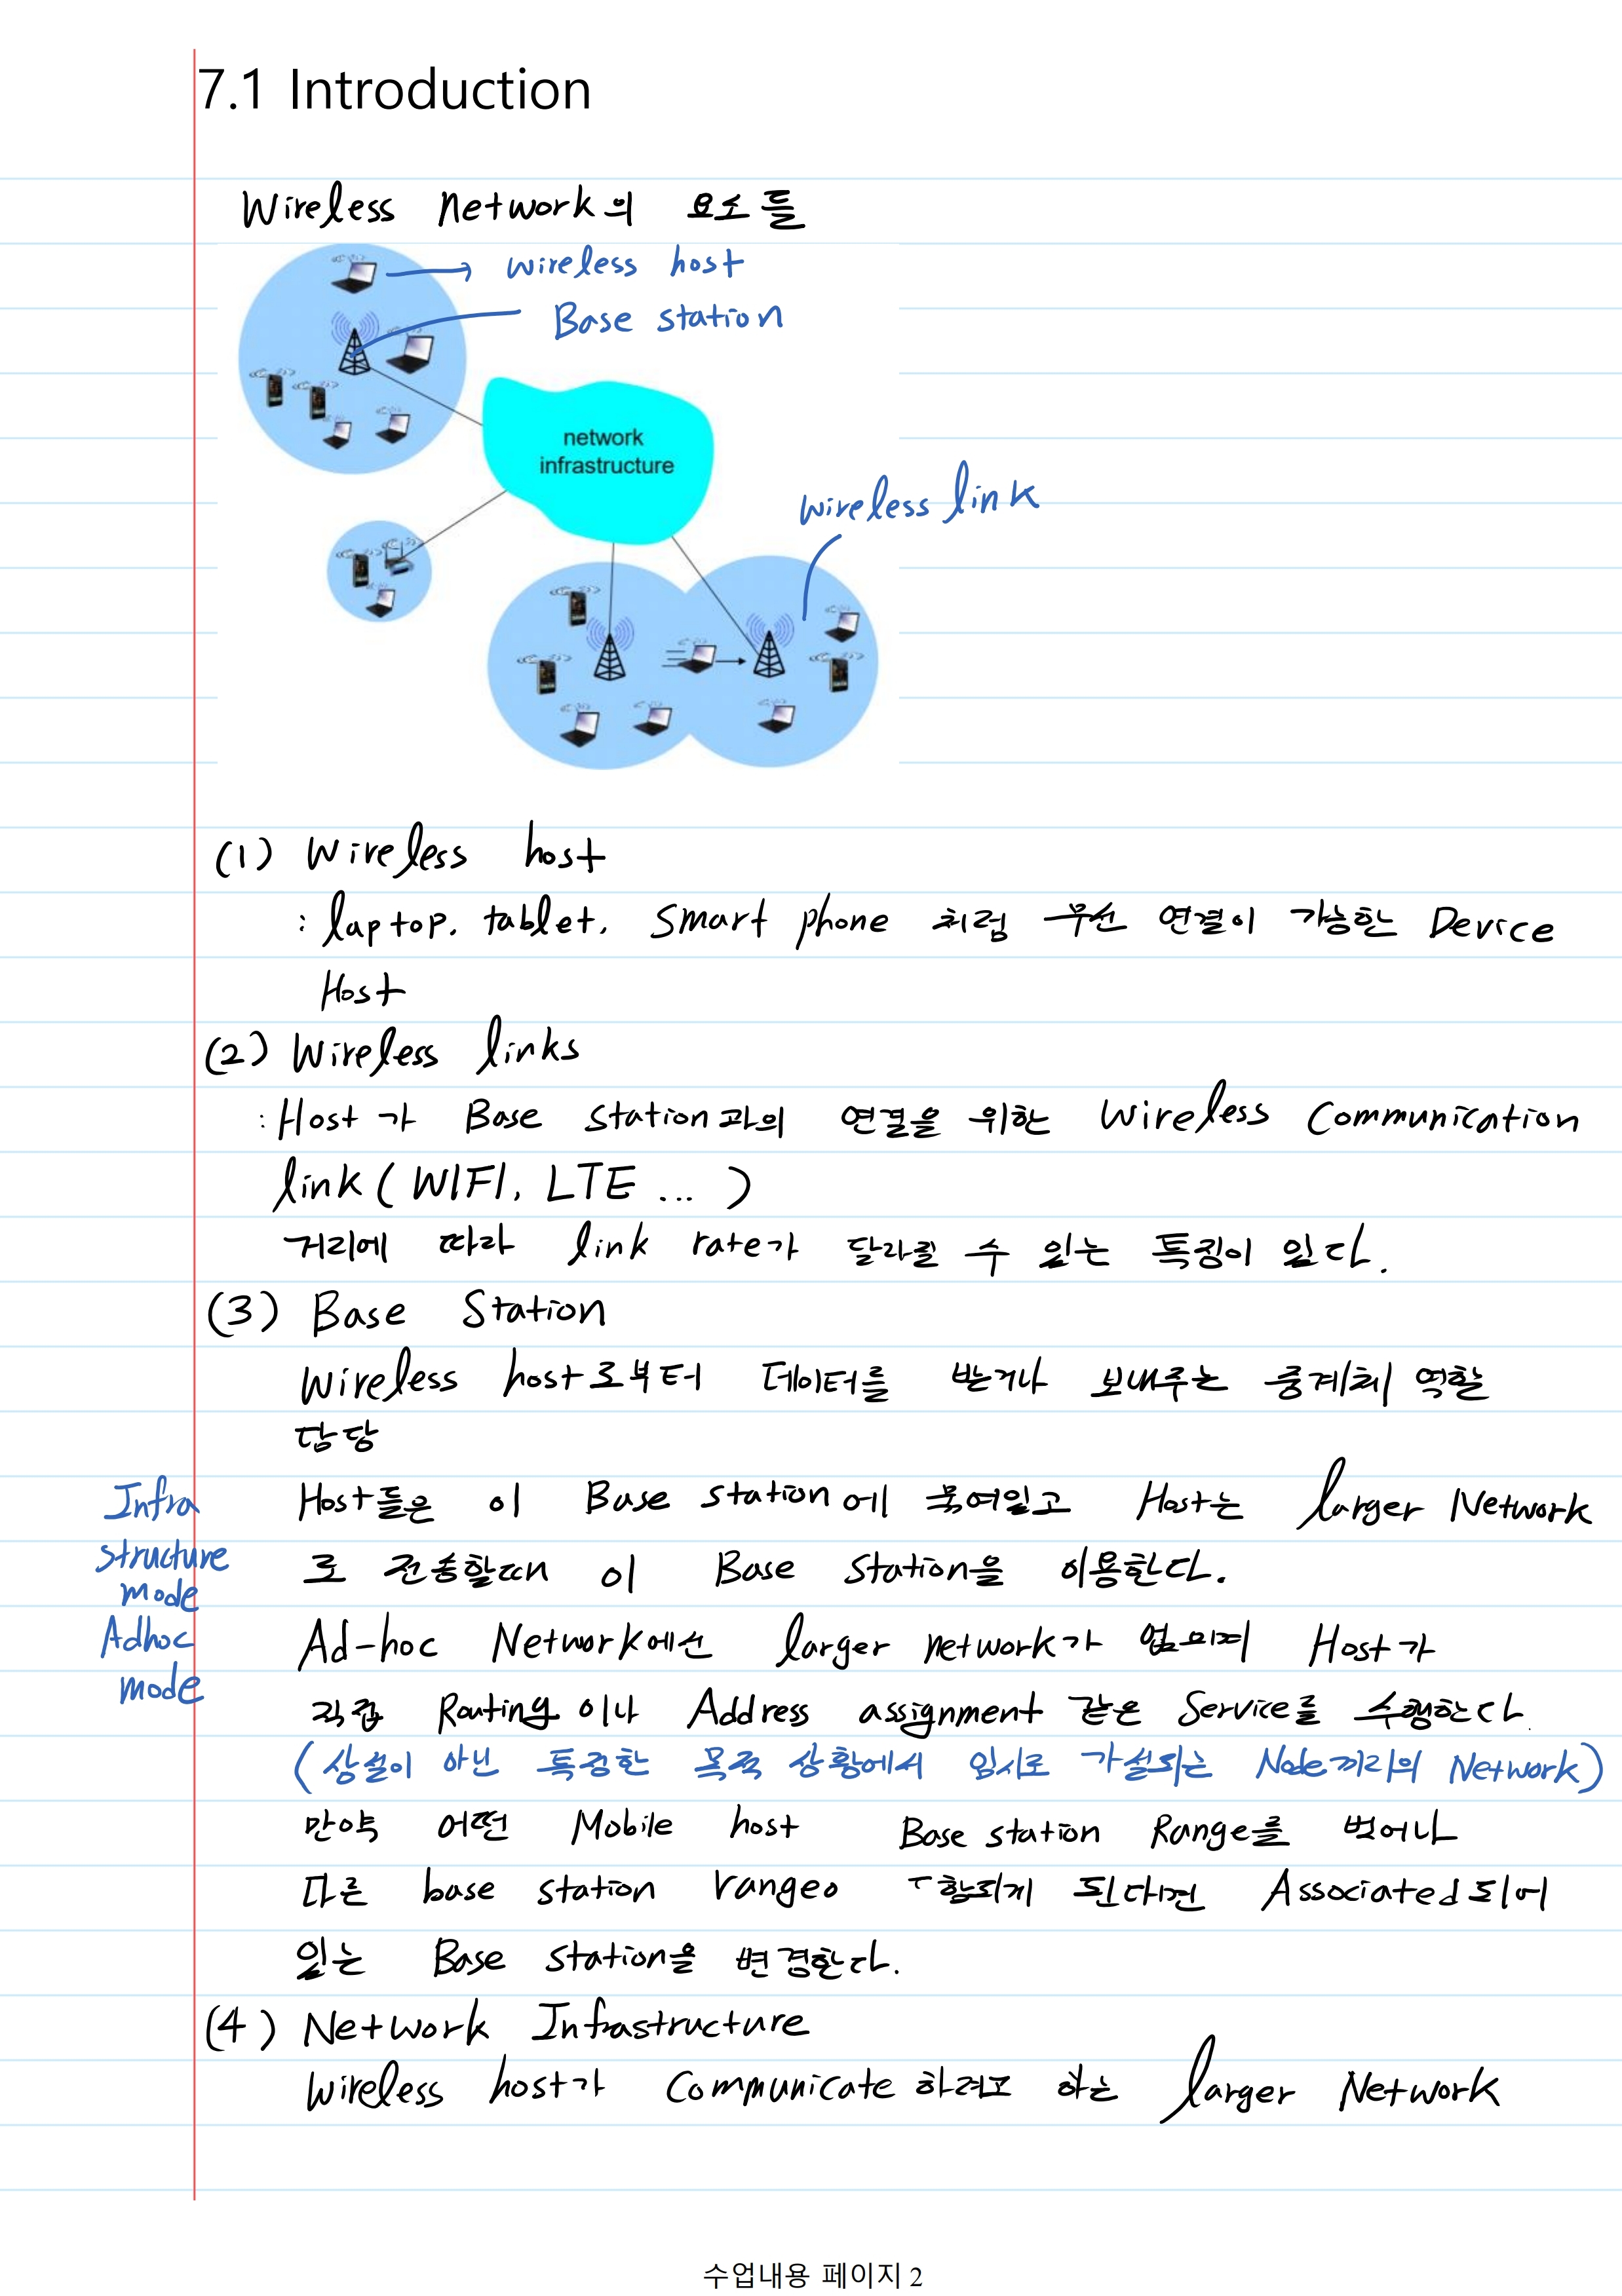 7.1 Introduction
Wireless network의 요소들
wireless host
Base station
network
infrastructure
wireless link
(1) Wireless host
: laptop, tablet, Smart phone 처럼 무선 연결이 가능한 Device
Host
(2) Wireless links
: Host가 Base Station과의 연결을 위한 Wireless Communication
link (WIFI, LTE ... )
거리에 따라 link rate가 달라질 수 있는 특징이 있다.
(3) Base Station
Wireless host로부터 데이터를 받거나 보내주는 중계체 역할
담당
Infra
structure
mode
Host들은 이 Base station에 묶여있고 Host는 larger Network
로 전송할때 이 Base Station을 이용한다.
Adhoc
mode
Ad-hoc Network에선 larger network가 없으며 Host가
직접 Routing이나 Address assignment 같은 Service를 수행한다.
(상설이 아닌 특정한 목적 상황에서 임시로 가설되는 Node끼리의 Network)
만약 어떤 Mobile host Base station Range를 벗어나
다른 base station range 함되게 된다면 Associated되어
있는 Base station을 변경한다.
(4) Network Infrastructure
Wireless host가 Communicate 하려고 하는 larger Network
수업내용 페이지 2